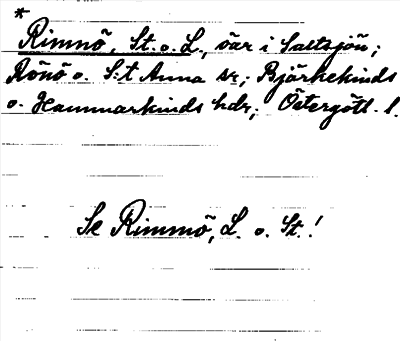 *
Rimnö, St. o. L., öar i Saltsjön;
Rönö o. S:t Anna sr; Björkekinds
o. Hammarkinds hdr; Östergötl. l.
Se Rimmö, L. o. St.!